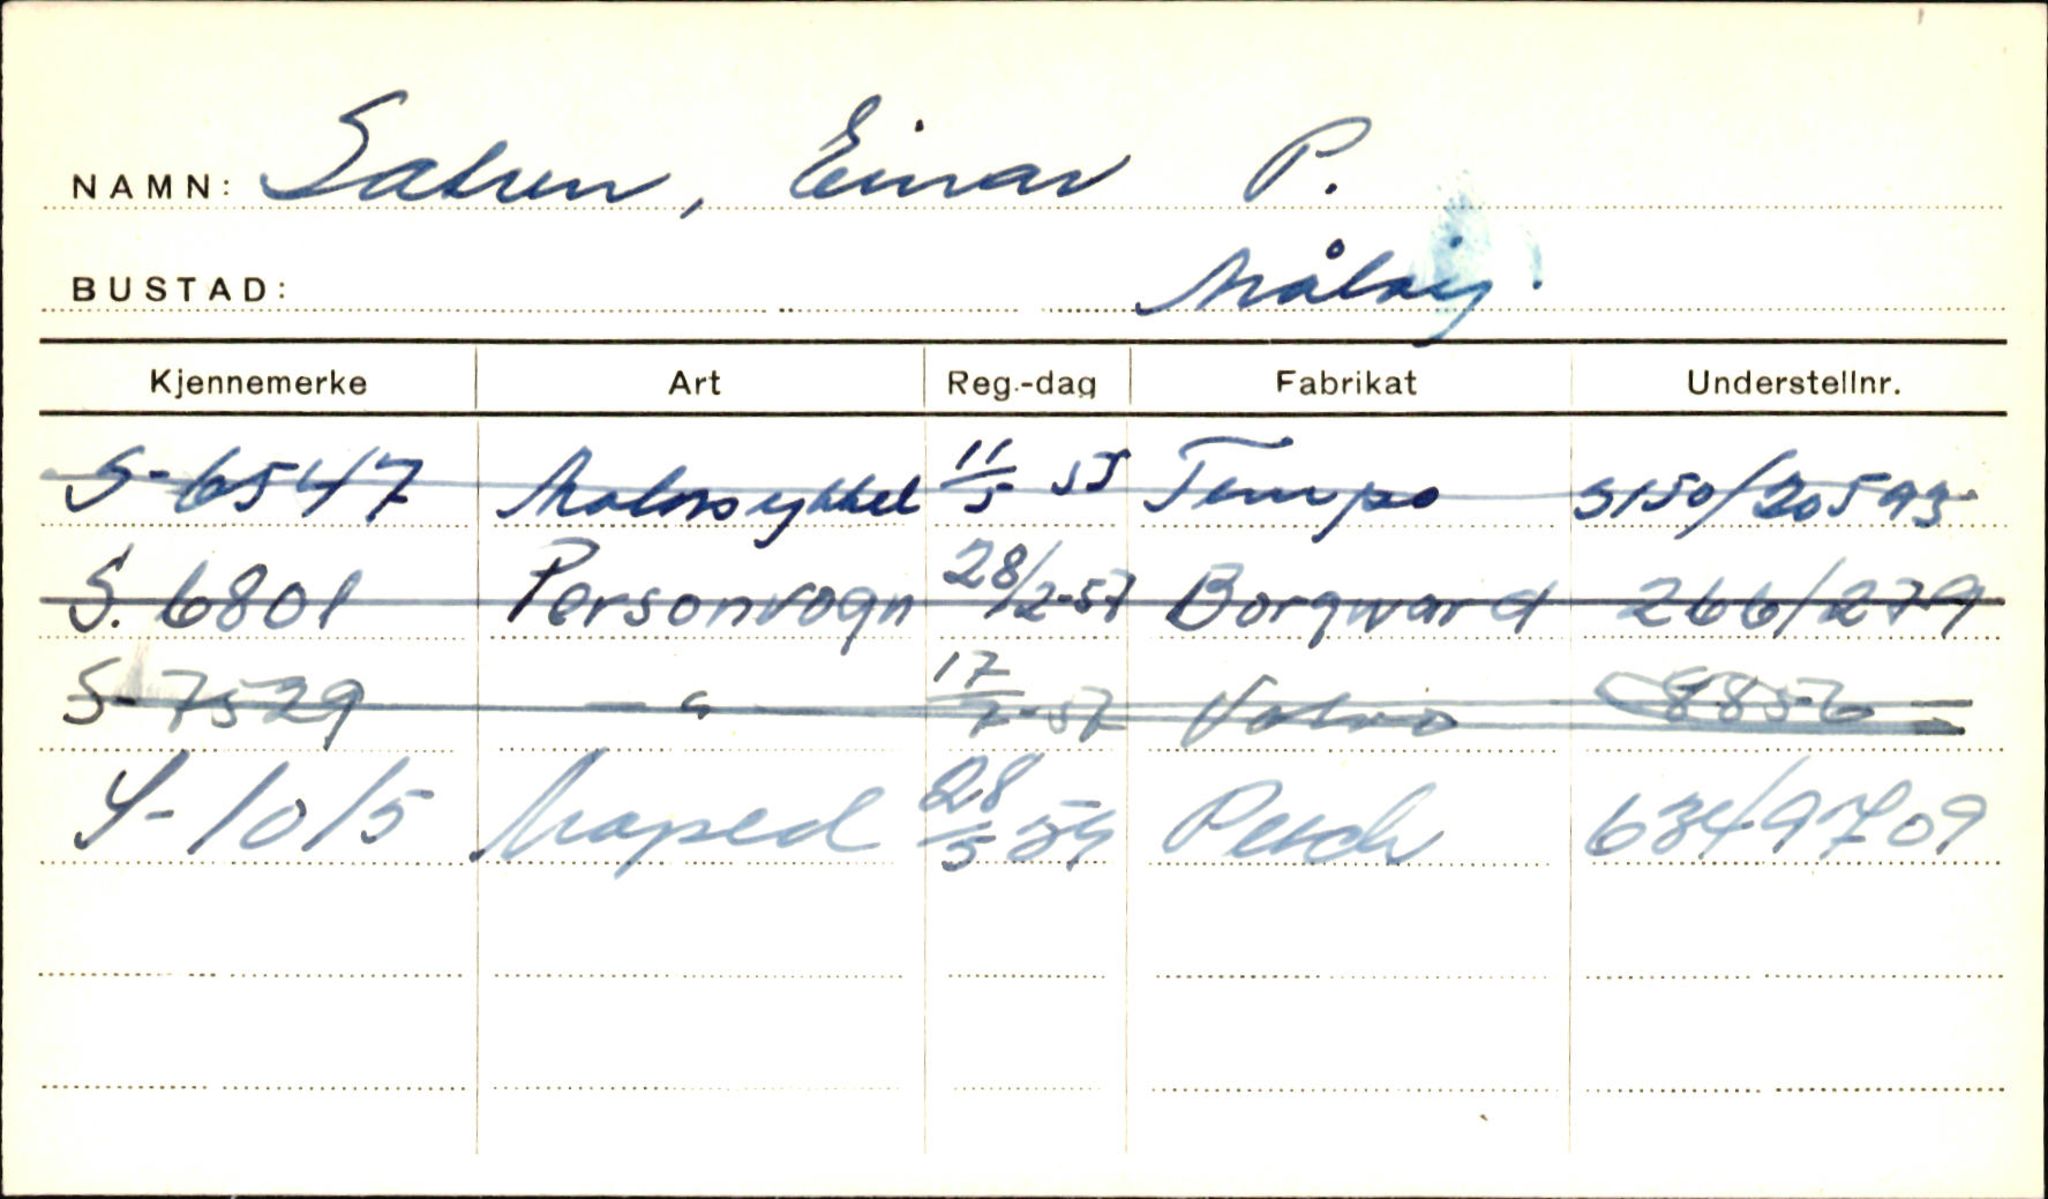 NAMN: Satren, Einar P.
BUSTAD: Måløy.
Kjennemerke Art Reg.-dag Fabrikat Understellnr.
S-6547 Motorsykkel 11/5 55 Tempo 3150/20593
S. 6801 Personvogn 28/2-57 Borgward 266/279
S-7529 — " — 17/7-57 Volvo 8856
S-1015 Moped 28/5 59 Puch 6349709